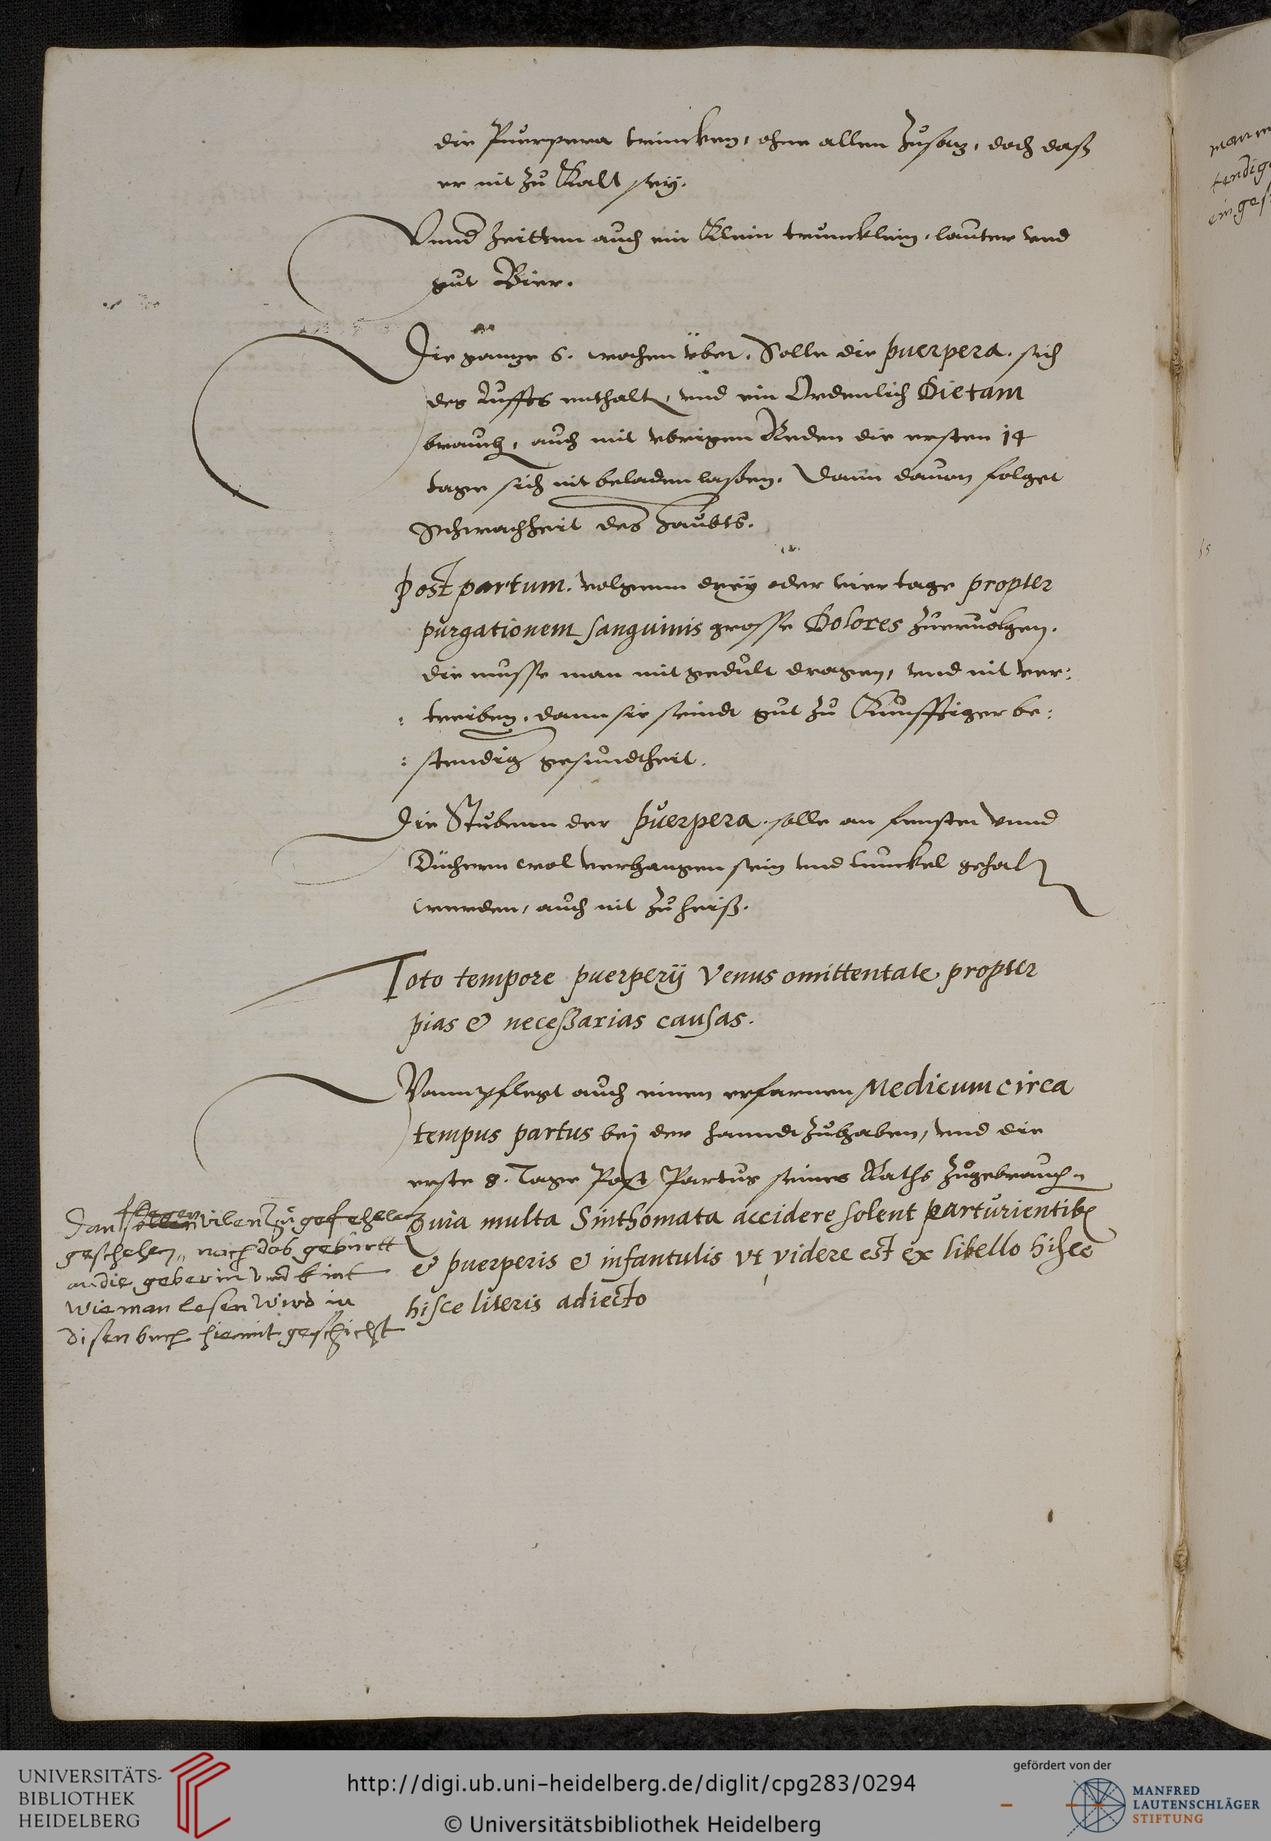 die Puerpera trincken, ohne allen Zusatz, doch daß
er nit zu Kalt sey.
Vnnd Zeitten auch ein Klein truncklein, lauter vnd
gut Bier.
Die gantze 6. wochen vber. Solle die puerpera. sich
des Luffts enthalten, vnd ein Ordenlich Dietam
brauchen, auch mit vbrigem Reden die ersten 14
tage sich nit beladen lassen, Dann davon folget
Schwachheit des Haubts.
Post partum. Volgenn drey oder vier tage propter
purgationem sanguinis grosse Dolores
die musse man mit gedult dragen, vnd nit ver:
: treiben, dann sie seindt gut zu Kunfftiger be:
: stendigen gesundtheit.
Die Stubenn der puerpera. solle an fenster vnnd
Düchern wol verhangen sein vnd tunckel gehalten
werden, auch nit zu heiß.
Toto tempore puerperij Venus omittentate propter
pias & necessarias causas.
Mann pflegt auch einen erfarnen Medicum circa
tempus partus bej der Hanndt zuhaben, vnd die
erste 8. Tage Post Partus seines Raths zugebrauchen
quia multa Sinthomata accidere solent parturientibus
& puerperis & infantulis vt videre est ex libello hisce
hisce literis adiecto
Dan pflegen vilen zu
geschehen, nach das geburtt
an die geberin vnd kint
wie man lesen wird in
disen buch hiemit geschicht
man
15
UNIVERSITÄTS-
BIBLIOTHEK
HEIDELBERG
http://digi.ub.uni-heidelberg.de/diglit/cpg283/0294
© Universitätsbibliothek Heidelberg
gefördert von der
MANFRED
LAUTENSCHLÄGER
STIFTUNG